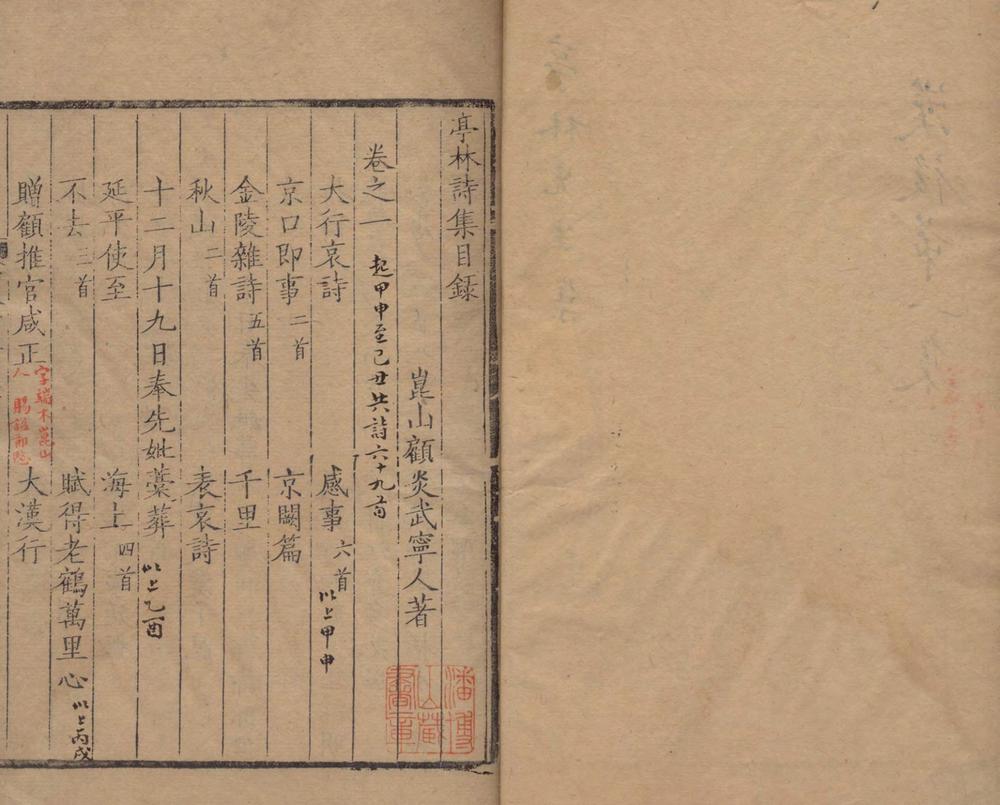 亭林詩集目録
崑山顧炎武寧人著
卷之一 起甲申至己丑共詩六十九首
大行哀詩 感事六首 以上甲申
京口即事二首 京闕篇
金陵雜詩五首 千里
秋山二首 表哀詩
十二月十九日奉先妣藁葬 以上乙酉
延平使至 海上四首
不去三首 賦得老鶴萬里心 以上丙戌
贈顧推官咸正 字端木崑山人 大漢行
潘博山藏書章